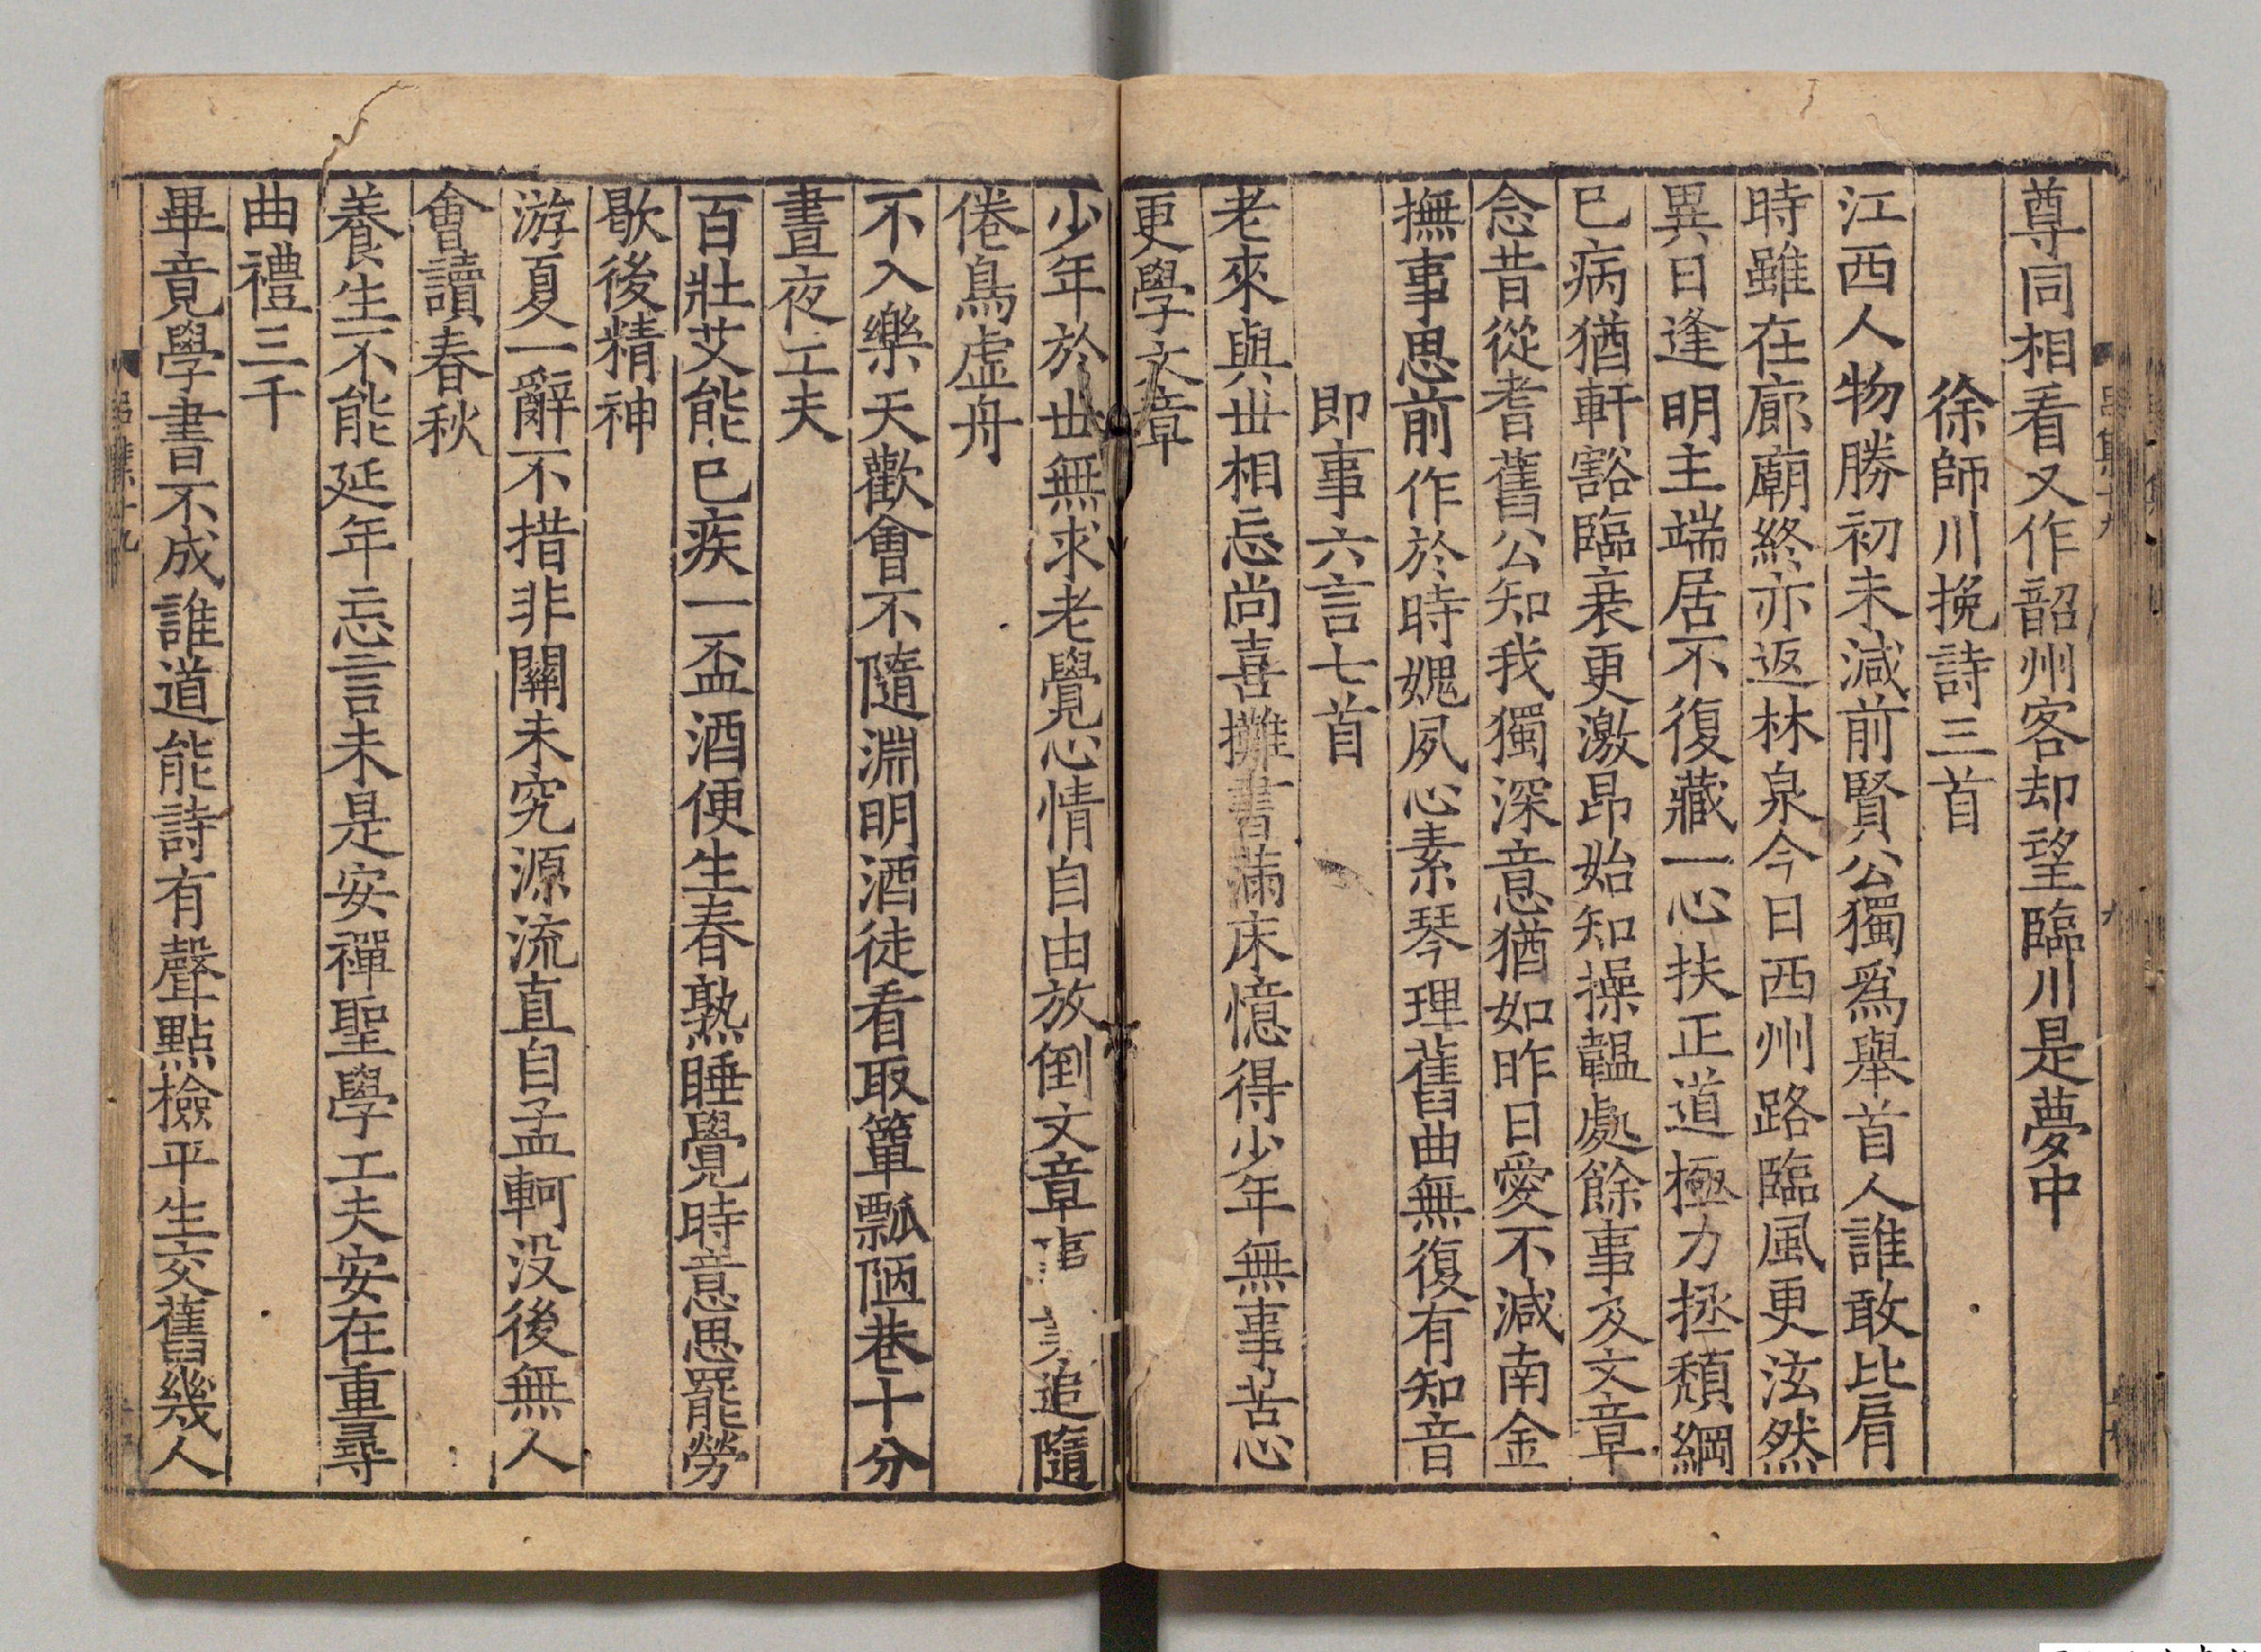 尊同相看又作韶州客却望臨川是夢中
徐師川挽詩三首
江西人物勝初未減前賢公獨爲舉首人誰敢比肩
時雖在廊廟終亦返林泉今日西州路臨風更泫然
異日逢明主端居不復藏一心扶正道極力拯頹綱
已病猶軒豁臨衰更激昂始知操韞處餘事及文章
念昔從耆舊公知我獨深意猶如昨日愛不減南金
撫事思前作於時媿夙心素琴理舊曲無復有知音
即事六言七首
老來與世相忘尚喜攤書滿床憶得少年無事苦心
更學文章
少年於世無求老覺心情自由放倒文章事追隨
倦鳥虛舟
不入樂天歡會不隨淵明酒徒看取簞瓢陋巷十分
晝夜工夫
百壯艾能已疾一盃酒便生春熟睡覺時意思罷勞
歇後精神
游夏一辭不措非關未究源流直自孟軻没後無人
會讀春秋
養生不能延年忘言未是安禪聖學工夫安在重尋
曲禮三千
畢竟學書不成誰道能詩有聲點檢平生交舊幾人